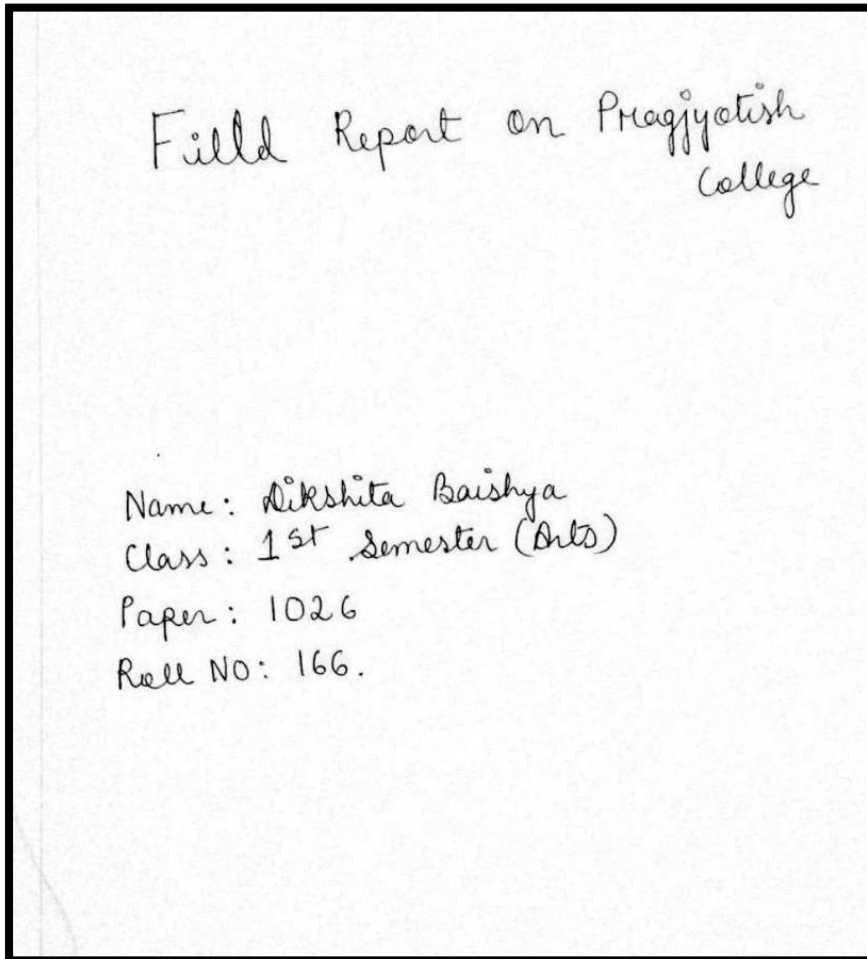 Fiild Report on Pragjyotish
College
Name: Dikshita Baishya
Class: 1st Semester (Arts)
Paper: 1026
Roll NO: 166.